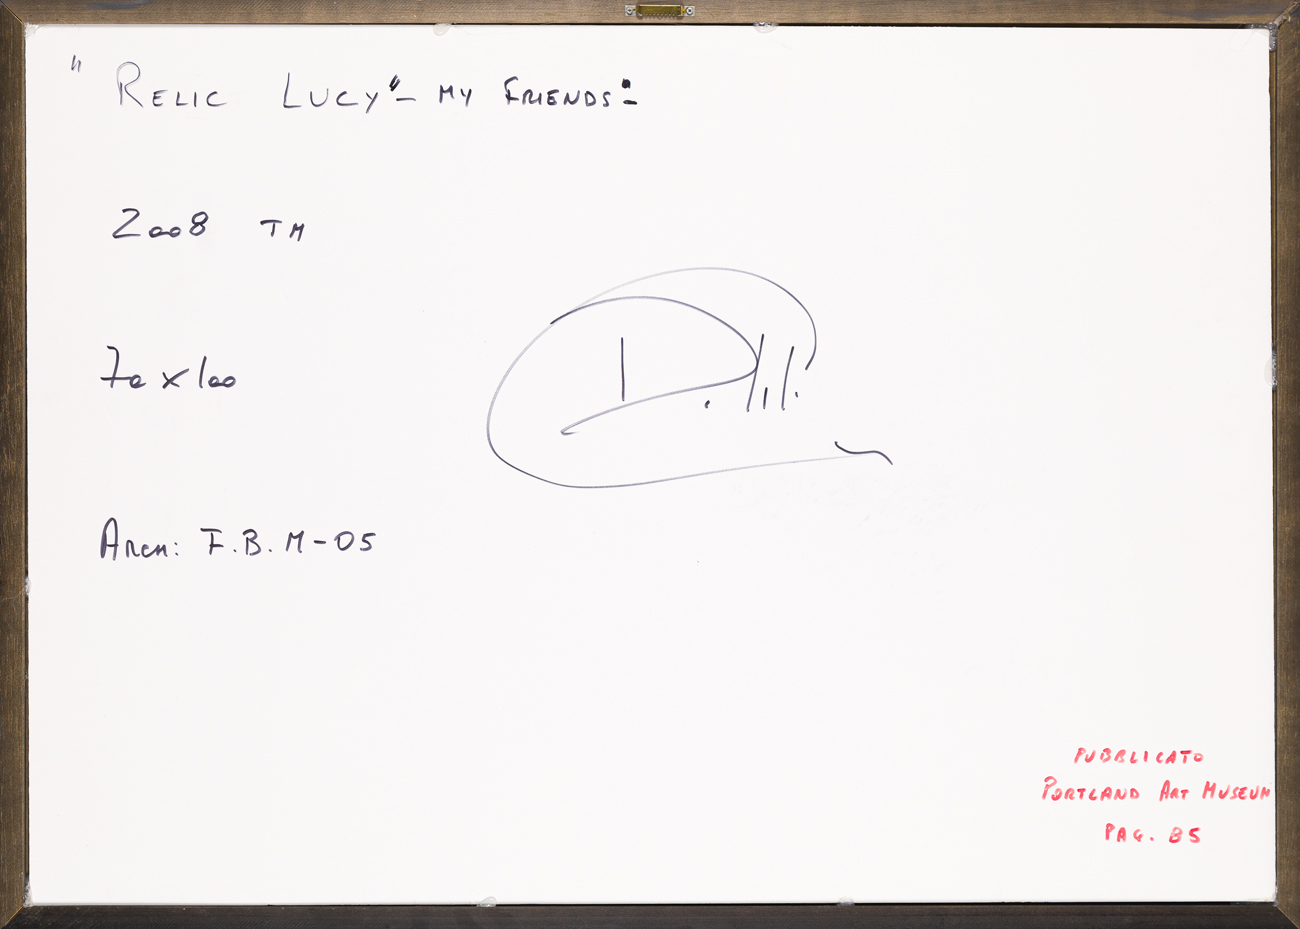 " RELIC LUCY" - MY FRIENDS" -
2008 TM
70x100
ARCH: F.B.M-05
PUBBLICATO
PORTLAND ART MUSEUM
PAG. 85